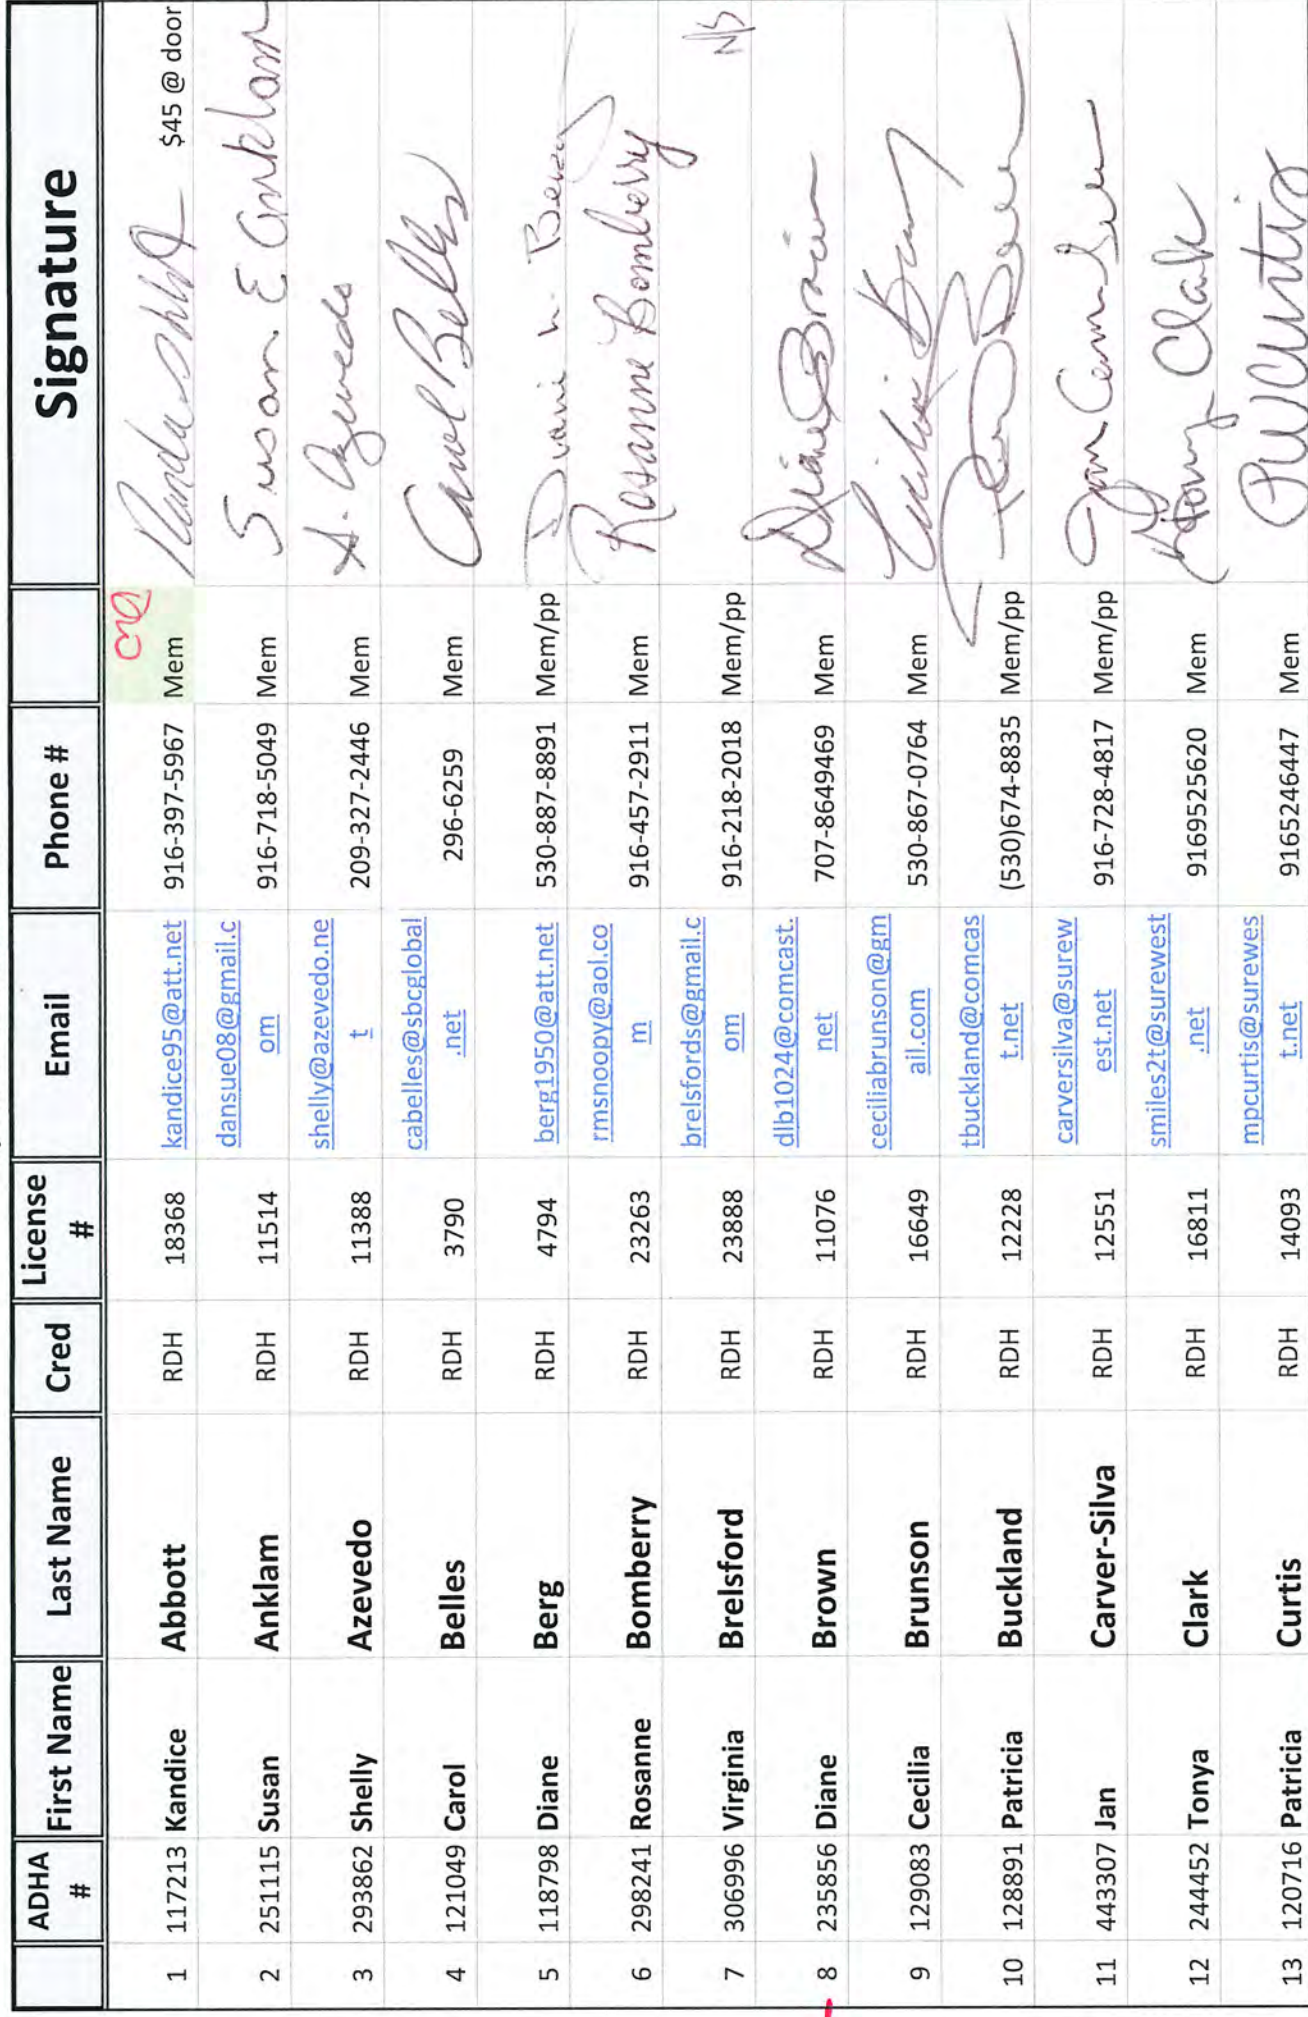 ADHA # First Name Last Name Cred License # Email Phone # Signature
1 117213 Kandice Abbott RDH 18368 kandice95@att.net 916-397-5967 Mem $45 @ door
2 251115 Susan Anklam RDH 11514 dansue08@gmail.com 916-718-5049 Mem Susan E Anklam
3 293862 Shelly Azevedo RDH 11388 shelly@azevedo.net 209-327-2446 Mem S. Azevedo
4 121049 Carol Belles RDH 3790 cabelles@sbcglobal.net 296-6259 Mem Carol Belles
5 118798 Diane Berg RDH 4794 berg1950@att.net 530-887-8891 Mem/pp
6 298241 Rosanne Bomberry RDH 23263 rmsnoopy@aol.com 916-457-2911 Mem Rosanne Bomberry
7 306996 Virginia Brelsford RDH 23888 brelsfords@gmail.com 916-218-2018 Mem/pp NS
8 235856 Diane Brown RDH 11076 dlb1024@comcast.net 707-8649469 Mem Diane Brown
9 129083 Cecilia Brunson RDH 16649 ceciliabrunson@gmail.com 530-867-0764 Mem
10 128891 Patricia Buckland RDH 12228 tbuckland@comcast.net (530)674-8835 Mem/pp
11 443307 Jan Carver-Silva RDH 12551 carversilva@surewest.net 916-728-4817 Mem/pp
12 244452 Tonya Clark RDH 16811 smiles2t@surewest.net 9169525620 Mem Tonya Clark
13 120716 Patricia Curtis RDH 14093 mpcurtis@surewest.net 9165246447 Mem